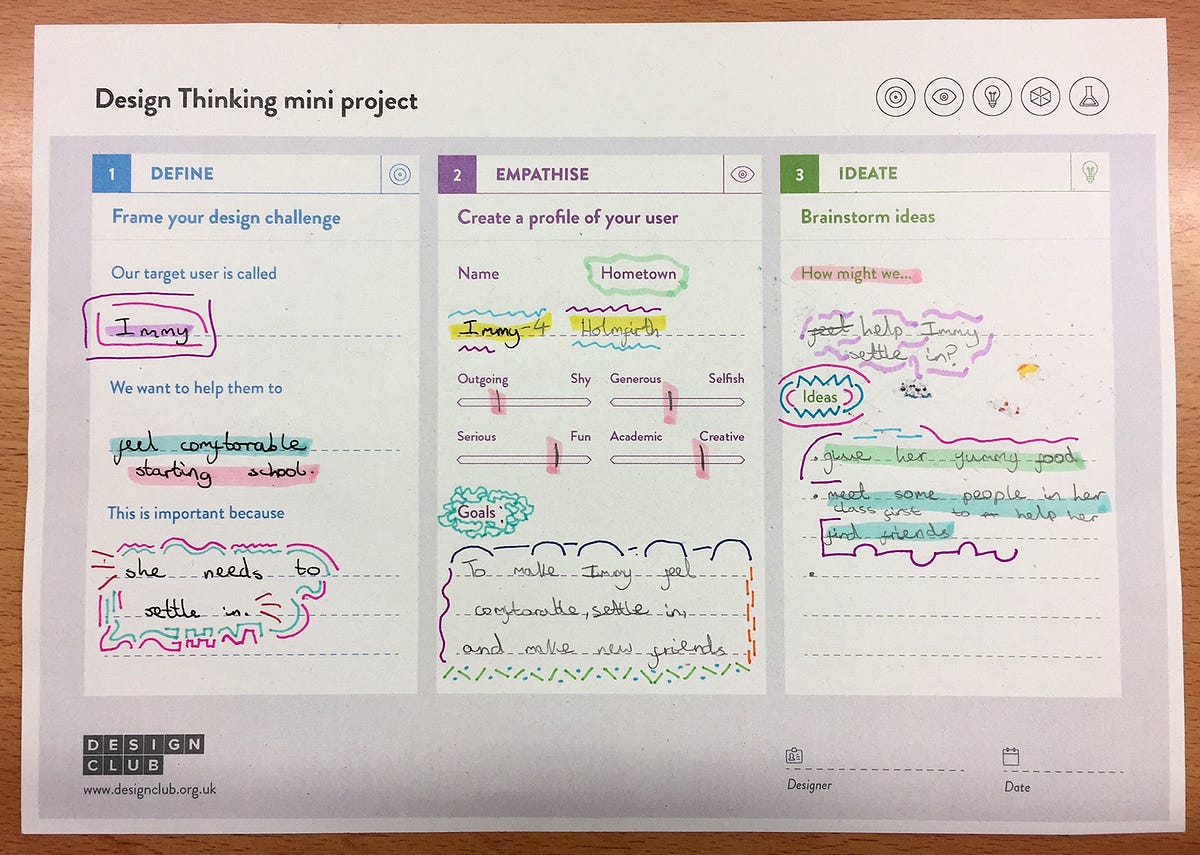 Design Thinking mini project
1 DEFINE
Frame your design challenge
Our target user is called
Immy
We want to help them to
feel comforrable
starting school.
This is important because
she needs to
settle in.
2 EMPATHISE
Create a profile of your user
Name Hometown
Immy-4 Holmfirth
Outgoing Shy Generous Selfish
Serious Fun Academic Creative
Goals:
To make Immy feel
comfortable, settle in,
and make new friends
3 IDEATE
Brainstorm ideas
How might we...
feel help Immy
settle in?
Ideas
• give her yummy food
• meet some people in her
class first to help her
find friends
•
DESIGN
CLUB
www.designclub.org.uk
Designer
Date